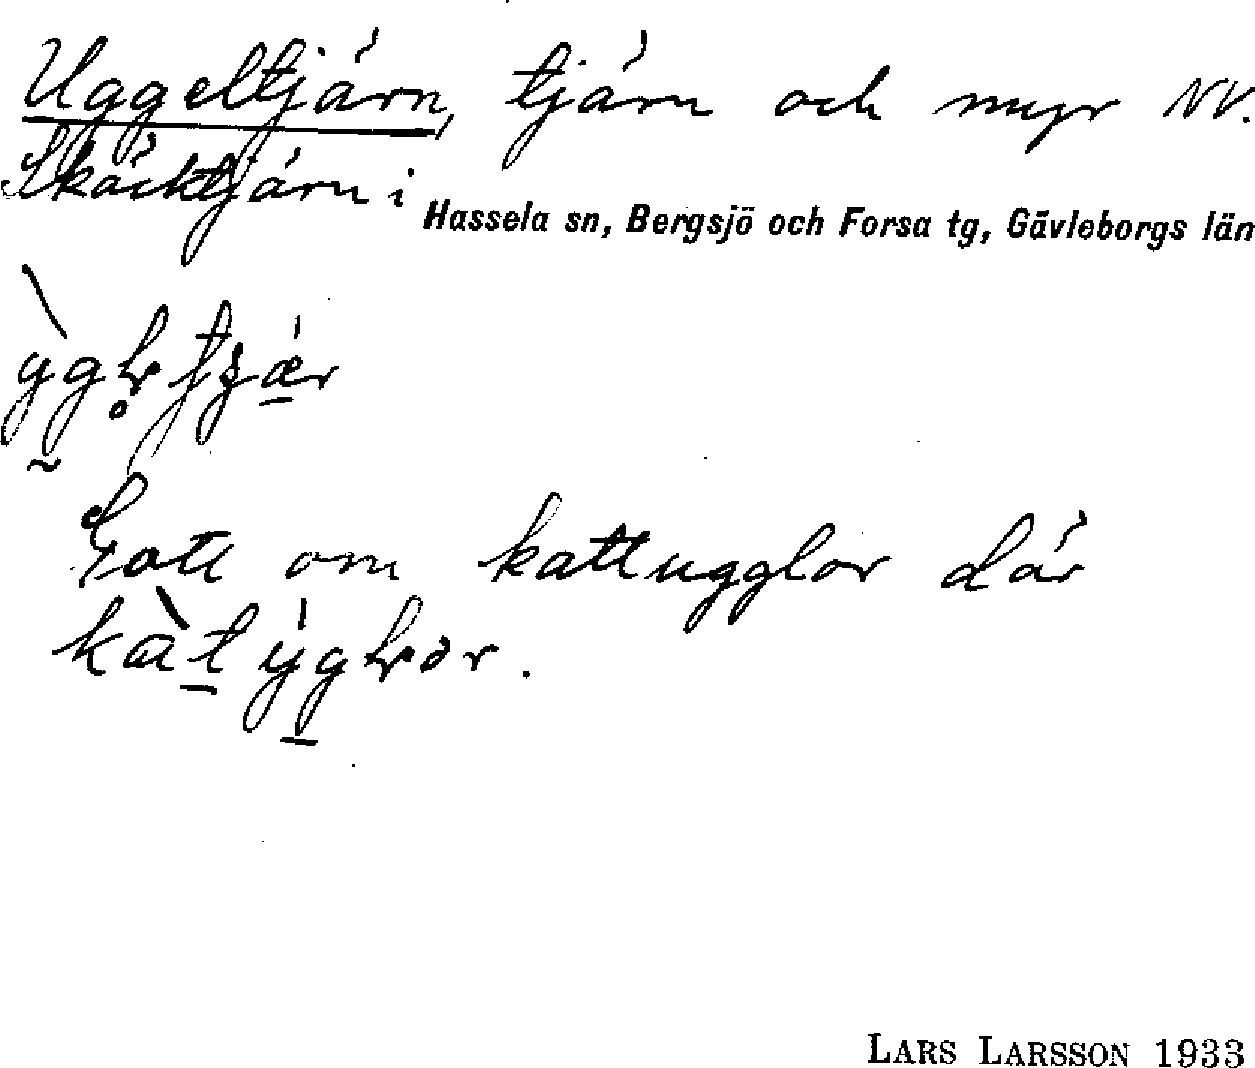 Uggeltjärn, tjärn och myr NV.
Skäcktjärn i Hassela sn, Bergsjö och Forsa tg, Gävleborgs län
Gott om kattugglor där
LARS LARSSON 1933